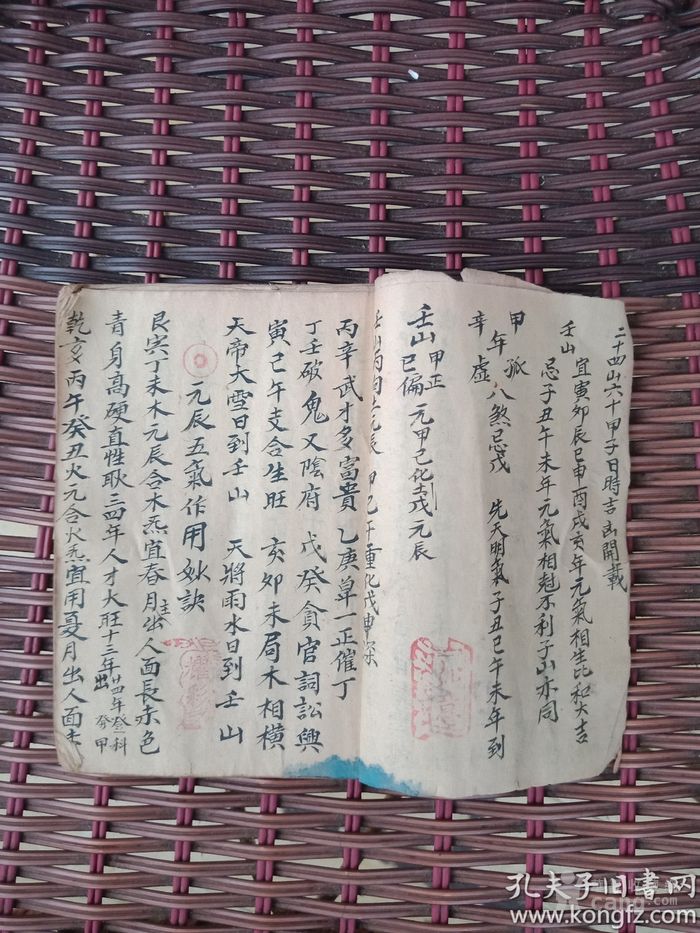 二十四山六十甲子日時吉凶開載
壬山 宜寅卯辰巳申酉戌亥年元氣相生比和大吉
忌子丑午未年元氣相尅不利子山亦同
甲年孤
辛年虛 八煞忌戊 先天明氣子丑巳午未年到
壬山 甲正 巳偏 元甲己化 元辰
元辰 甲己午重化戊申
丙辛武才多富貴 乙庚草一正催丁
丁壬破鬼又陰府 戊癸貪官詞訟興
寅己午支合生旺 亥卯未局木相橫
天帝大雪日到壬山 天將雨水日到壬山
元辰五氣作用妙訣
艮丁未木元辰合木炁宜春月主出人面長赤色
青身高硬直性耿三四年人才大旺十三年出廿四年登科發甲
乾亥丙午癸丑火元合火炁宜用夏月出人面
孔夫子旧书网
www.kongfz.com